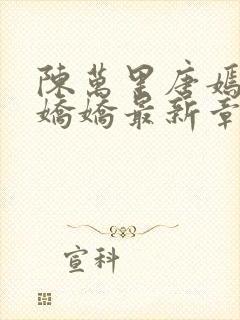 陳萬里唐嫣
嬌嬌最新章
宣科